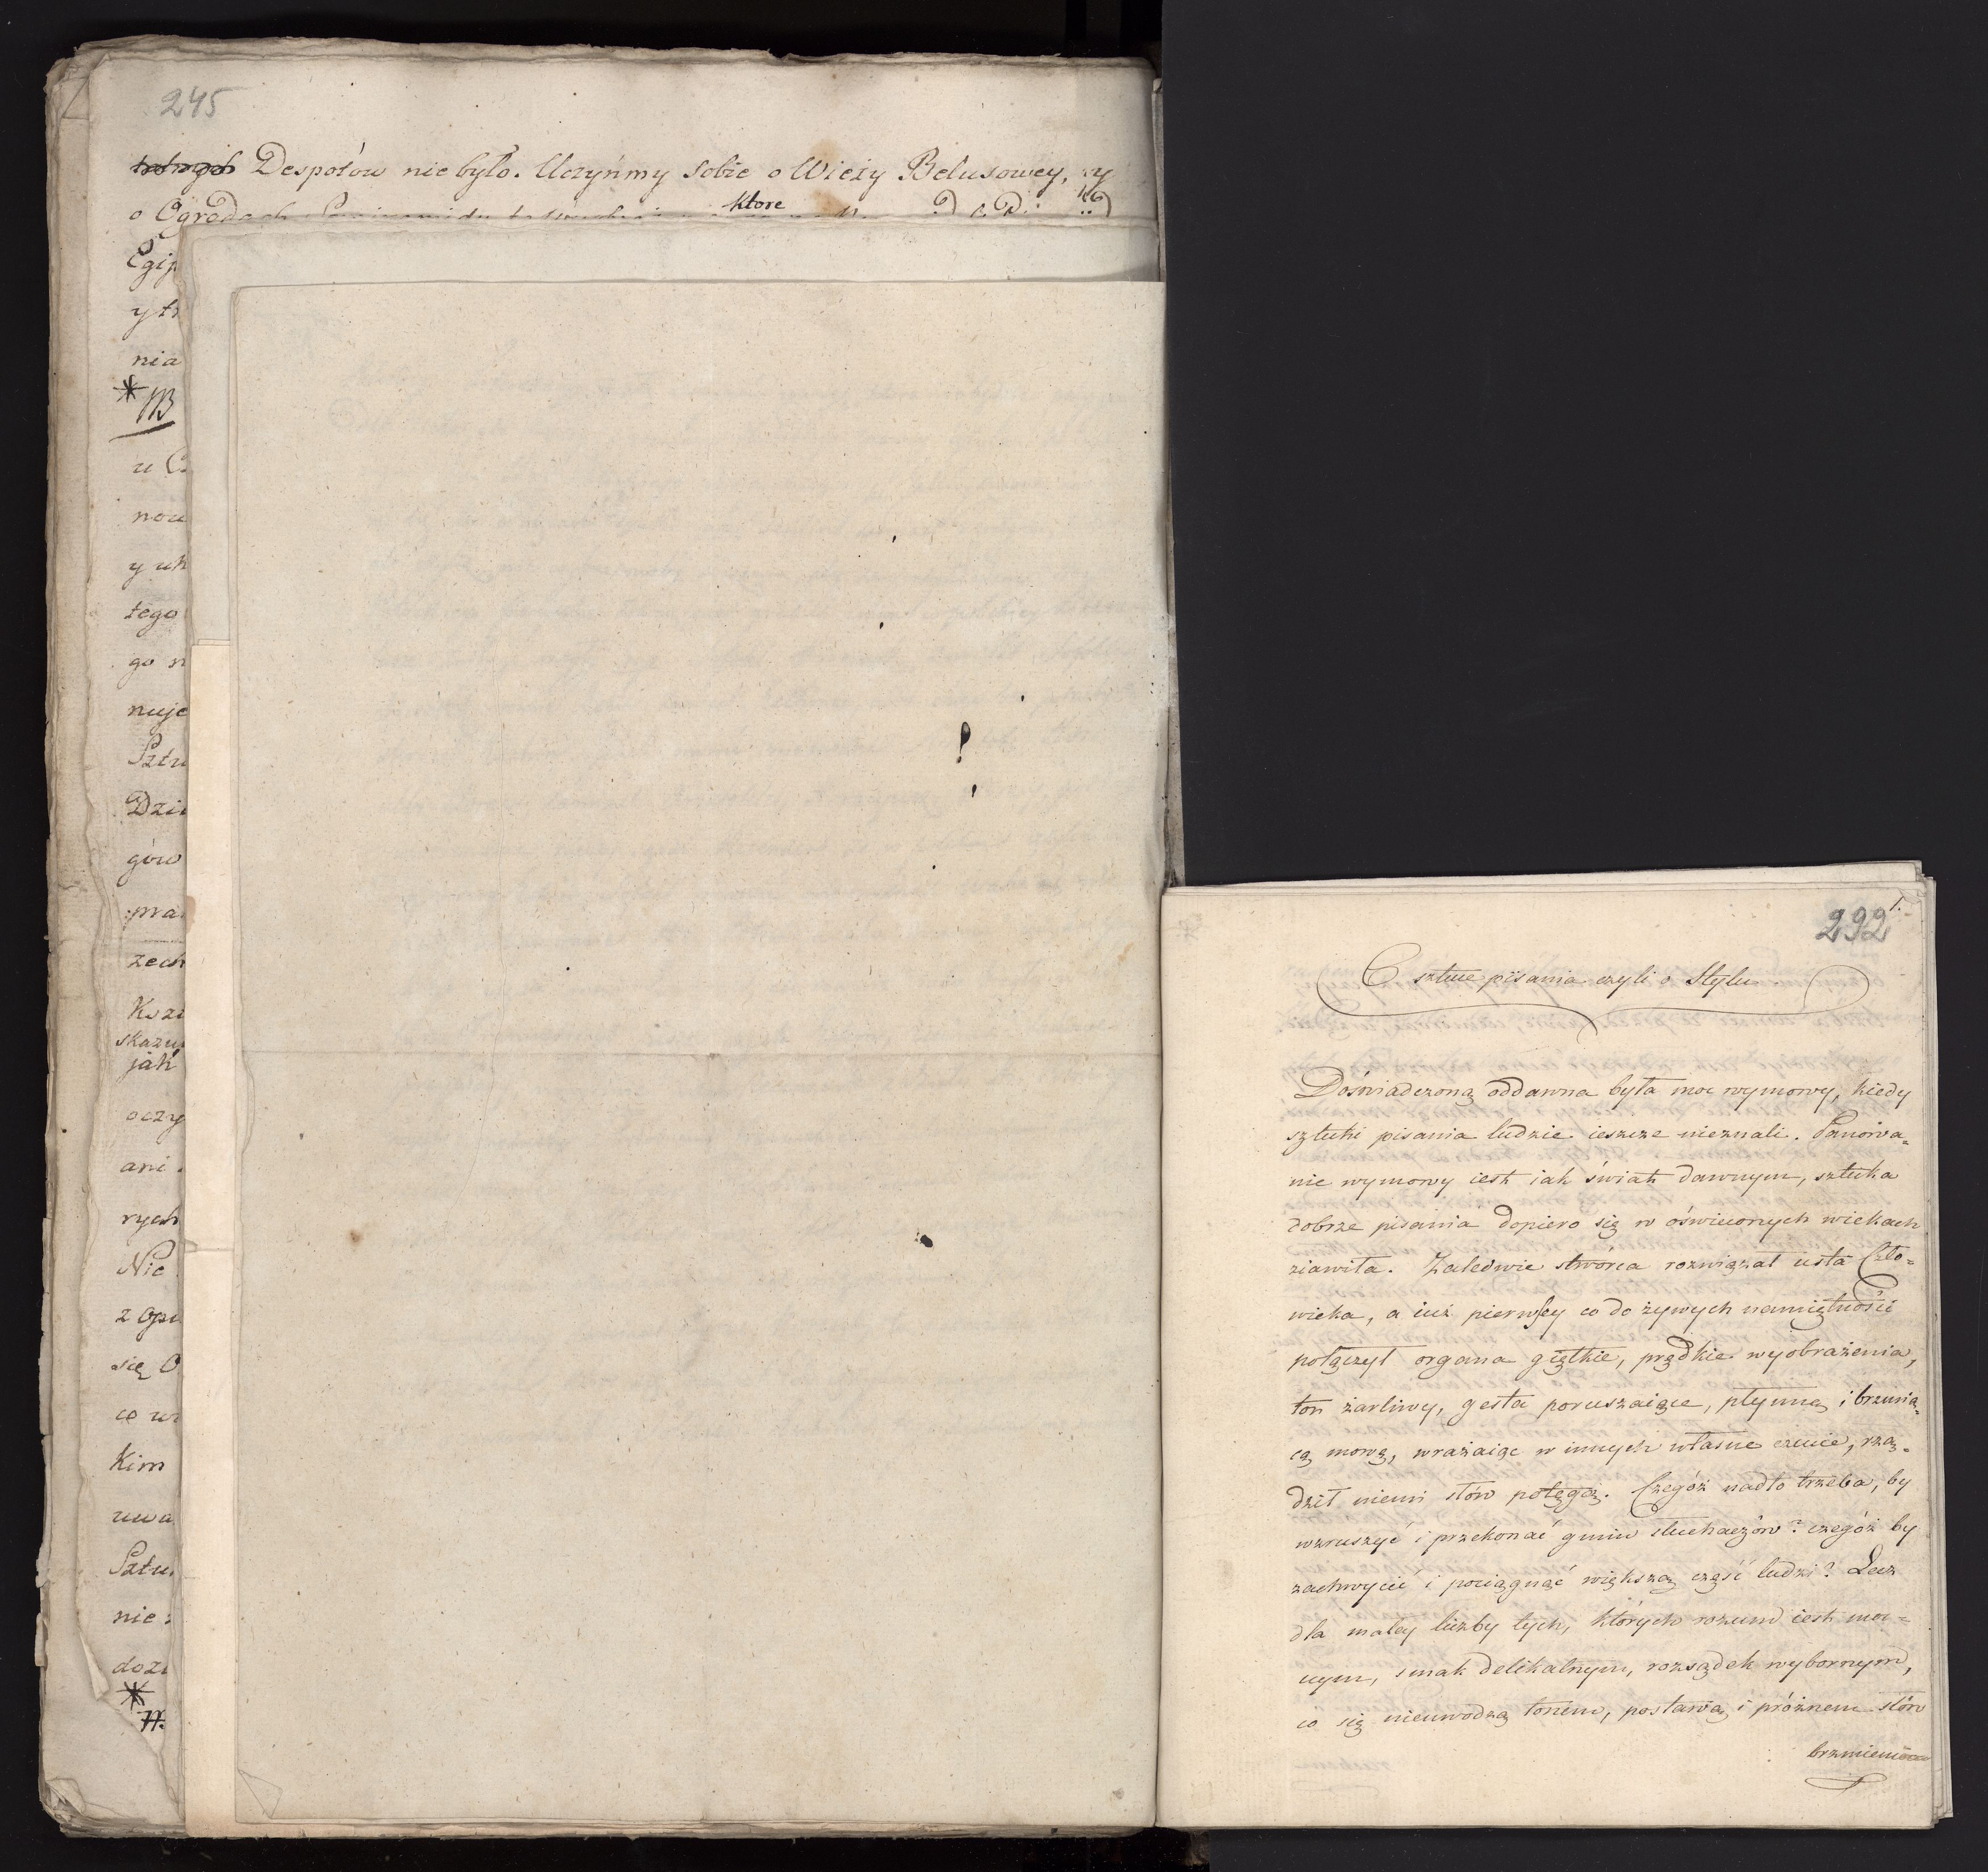 245
Despotów nie było. Uczyńmy sobie o Wieży Belusowey, y
ktore
o Ogrodach
Egip
y tr
nia
* NB
u C
now
y uk
tego
go n
nuje
Sztu
Dzie
gów
pra
zech
Kozi
skazu
jak
oczy
ani
rych
Nie
z Opi
się O
co w
Kim
uwa
Sztu
nie
dozi
*
292
1.
O sztuce pisania czyli o Stylu
Doświadczoną oddawna była moc wymowy, kiedy
sztuki pisania ludzie ieszcze nieznali. Panowa=
nie wymowy iest iak świat dawnym, sztuka
dobrze pisania dopiero się w oświeconych wiekach
ziawiła. Zaledwie stwórca rozwiązał usta Czło=
wieka, a iuż pierwszy co do żywych namiętności
połączył organa giętkie, prędkie wyobrażenia,
ton żarliwy, gesta poruszaiące, płynną i brzmią=
cą mową, wrażaiąc w innych własne czucie, rzą=
dził niemi słów potęgą. Czegóż nadto trzeba, by
wzruszyć i przekonać gmin słuchaczów? czegóż by
zachwycić i pociągnąć większą część ludzi? Lecz
dla małey liczby tych, których rozum iest moc=
nym, smak delikatnym, rozsądek wybornym,
co się nieuwodzą tonem, postawą i próżnem słów
brzmieniem